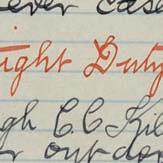 ever case
ight Duty
gh C.C. Kil
r out do